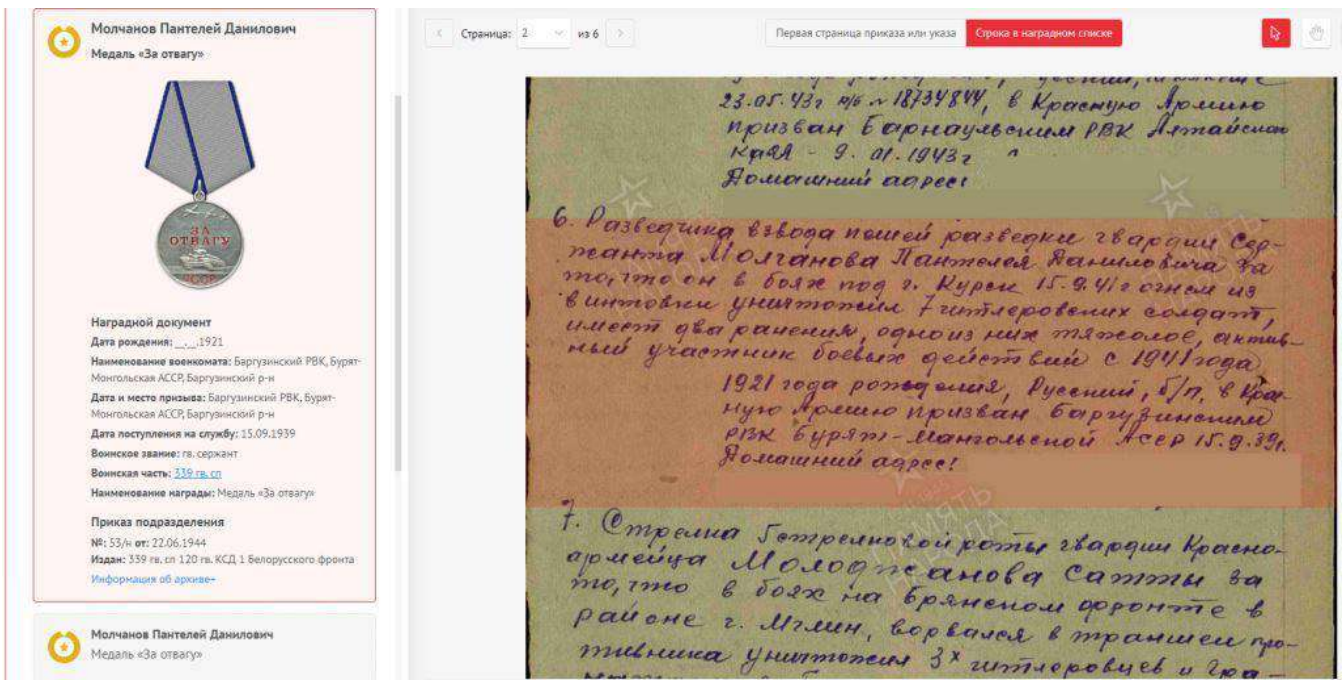 Молчанов Пантелей Данилович
Медаль «За отвагу»
ЗА
ОТВАГУ
СССР
Наградной документ
Дата рождения: __.__.1921
Наименование военкомата: Баргузинский РВК, Бурят-
Монгольская АССР, Баргузинский р-н
Дата и место призыва: Баргузинский РВК, Бурят-
Монгольская АССР, Баргузинский р-н
Дата поступления на службу: 15.09.1939
Воинское звание: гв. сержант
Воинская часть: 339 гв. сп
Наименование награды: Медаль «За отвагу»
Приказ подразделения
№: 53/н от: 22.06.1944
Издан: 339 гв. сп 120 гв. КСД 1 Белорусского фронта
Информация об архиве+
Молчанов Пантелей Данилович
Медаль «За отвагу»
Страница: 2 из 6
Первая страница приказа или указа
Строка в наградном списке
23.05.43г п/б № 18734844, в Красную Армию
призван Барнаульским РВК Алтайского
края - 9.01.1943г
Домашний адрес:
6. Разведчика взвода пешей разведки гвардии Сер-
жанта Молчанова Пантелея Даниловича за
то, что он в боях под г. Курск 15.9.41г огнем из
винтовки уничтожил 7 гитлеровских солдат,
имеет два ранения, одно из них тяжолое, актив-
ный участник боевых действий с 1941 года
1921 года рождения, Русский, б/п, в Крас-
ную Армию призван Баргузинским
РВК Бурят-Мангольской АССР 15.9.39г.
Домашний адрес:
7. Стрелка стрелковой роты гвардии Красно-
армейца Молоджанова Сатты за
то, что в боях на Брянском фронте в
районе г. Мглин, ворвался в траншеи про-
тивника уничтожил 3х гитлеровцев и гра-